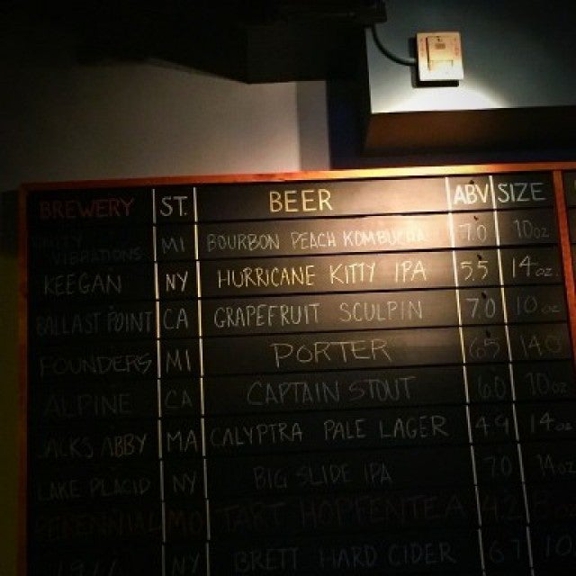 BREWERY ST. BEER ABV SIZE
VIBRATIONS MI BOURBON PEACH KOMBUCHA 7.0 10oz
KEEGAN NY HURRICANE KITTY IPA 5.5 14oz.
BALLAST POINT CA GRAPEFRUIT SCULPIN 7.0 10oz
FOUNDERS MI PORTER 6.5 14oz
ALPINE CA CAPTAIN STOUT 6.0 10oz
JACKS ABBY MA CALYPTRA PALE LAGER 4.9 14oz
LAKE PLACID NY BIG SLIDE IPA 7.0 14oz
PERENNIAL MO TART HOPFENTEA 4.2
1911 NY BRETT HARD CIDER 6.7 10